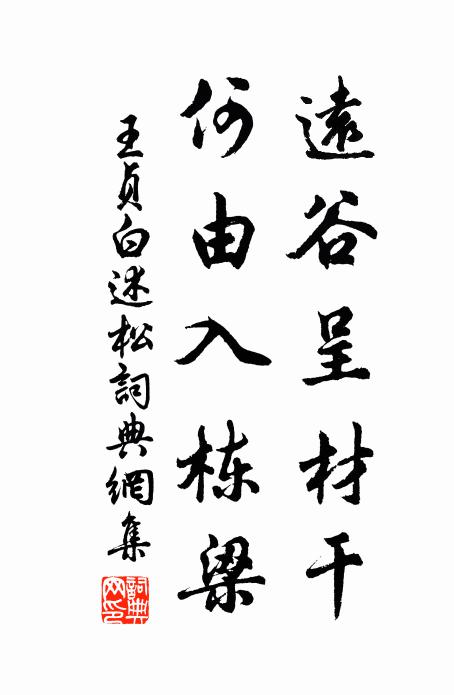 遠谷呈材干
何由入栋梁
王貞白述松詞典網集
詞典网印